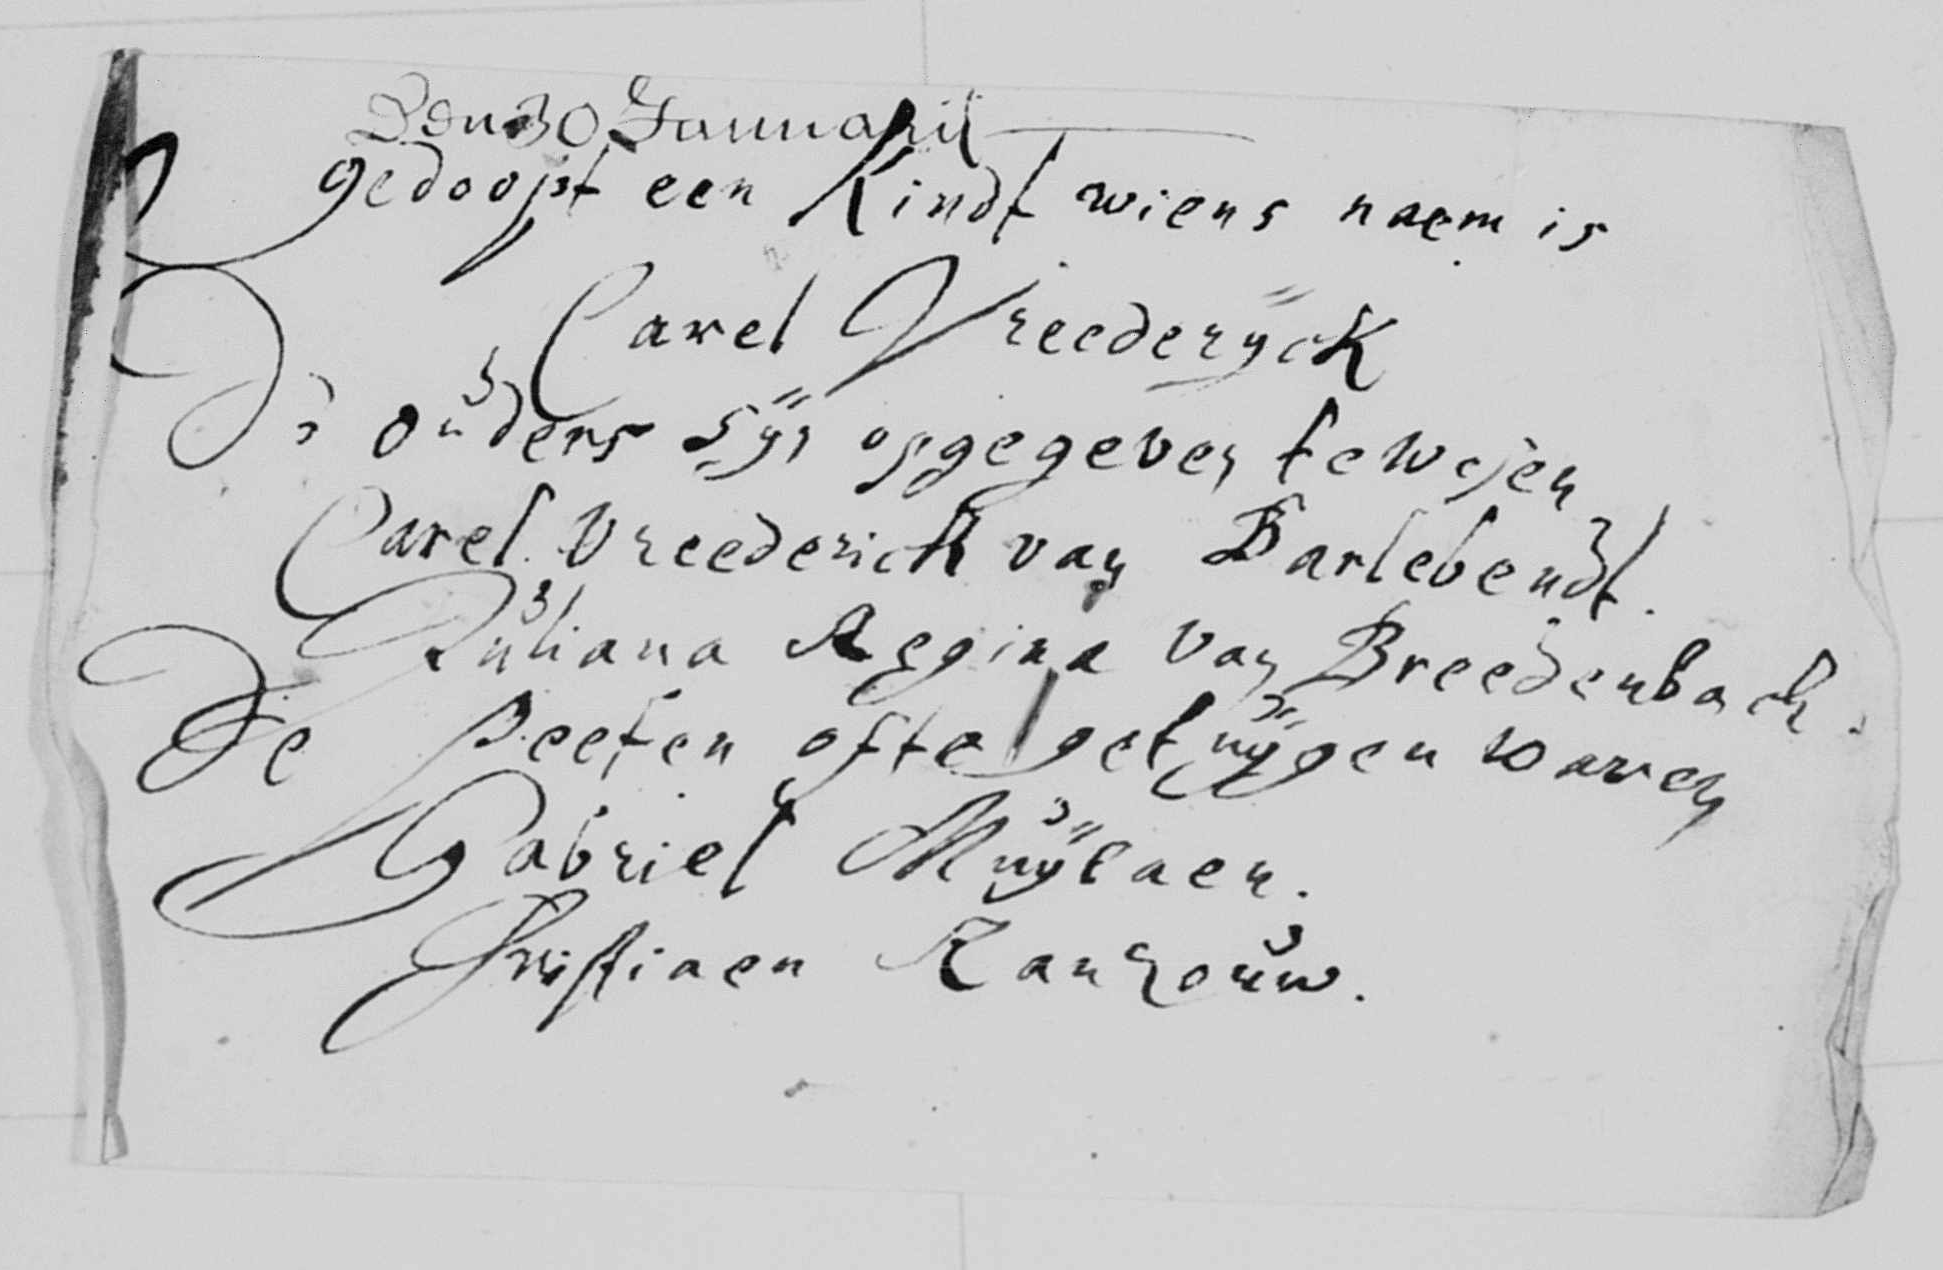 Den 30 Januarij
gedoopt een Kindt wiens naem is
Carel Vreederÿck
De ouders sÿn opgegeven te wesen
Carel Vreederick van Barlebendt.
Juliana Regina van Breedenbach.
De Peeten ofte getuÿgen waren
Gabriel Muÿlaen.
Cristiaen Ranzouw.